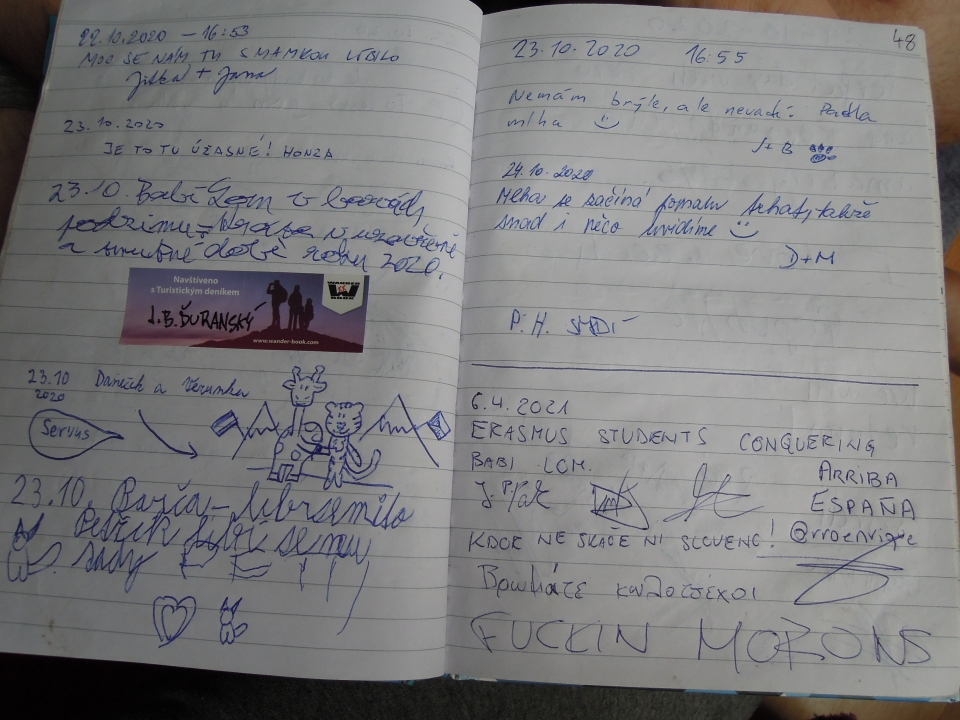 22.10.2020 – 16:53
MOC SE NÁM TU S MAMKOU LÍBILO
Jitka + Jana
23.10.2020
JE TO TU ÚŽASNÉ! HONZA
23.10. Babí Lom v barvách
podzimu =
a smutné době roku 2020.
Navštíveno
s Turistickým deníkem
WANDER
BOOK
J.B. ŠURANSKÝ
www.wander-book.com
23.10
2020
Daneček a Verunka
Servus
23.10. Barča
se mu
48
23.10.2020 16:55
Nemám brýle, ale nevadí. Padla
mlha
J+B
24.10.2020
Mlha se začíná pomalu trhat, takže
snad i něco uvidíme
D+M
P. H.
6.4.2021
ERASMUS STUDENTS CONQUERING
BABI LOM.
ARRIBA
ESPAÑA
KDOR NE SKAČE NI SLOVENC! @rroenrique
Βρωμιάτε καλοτσέχοι
FUCKIN MORONS